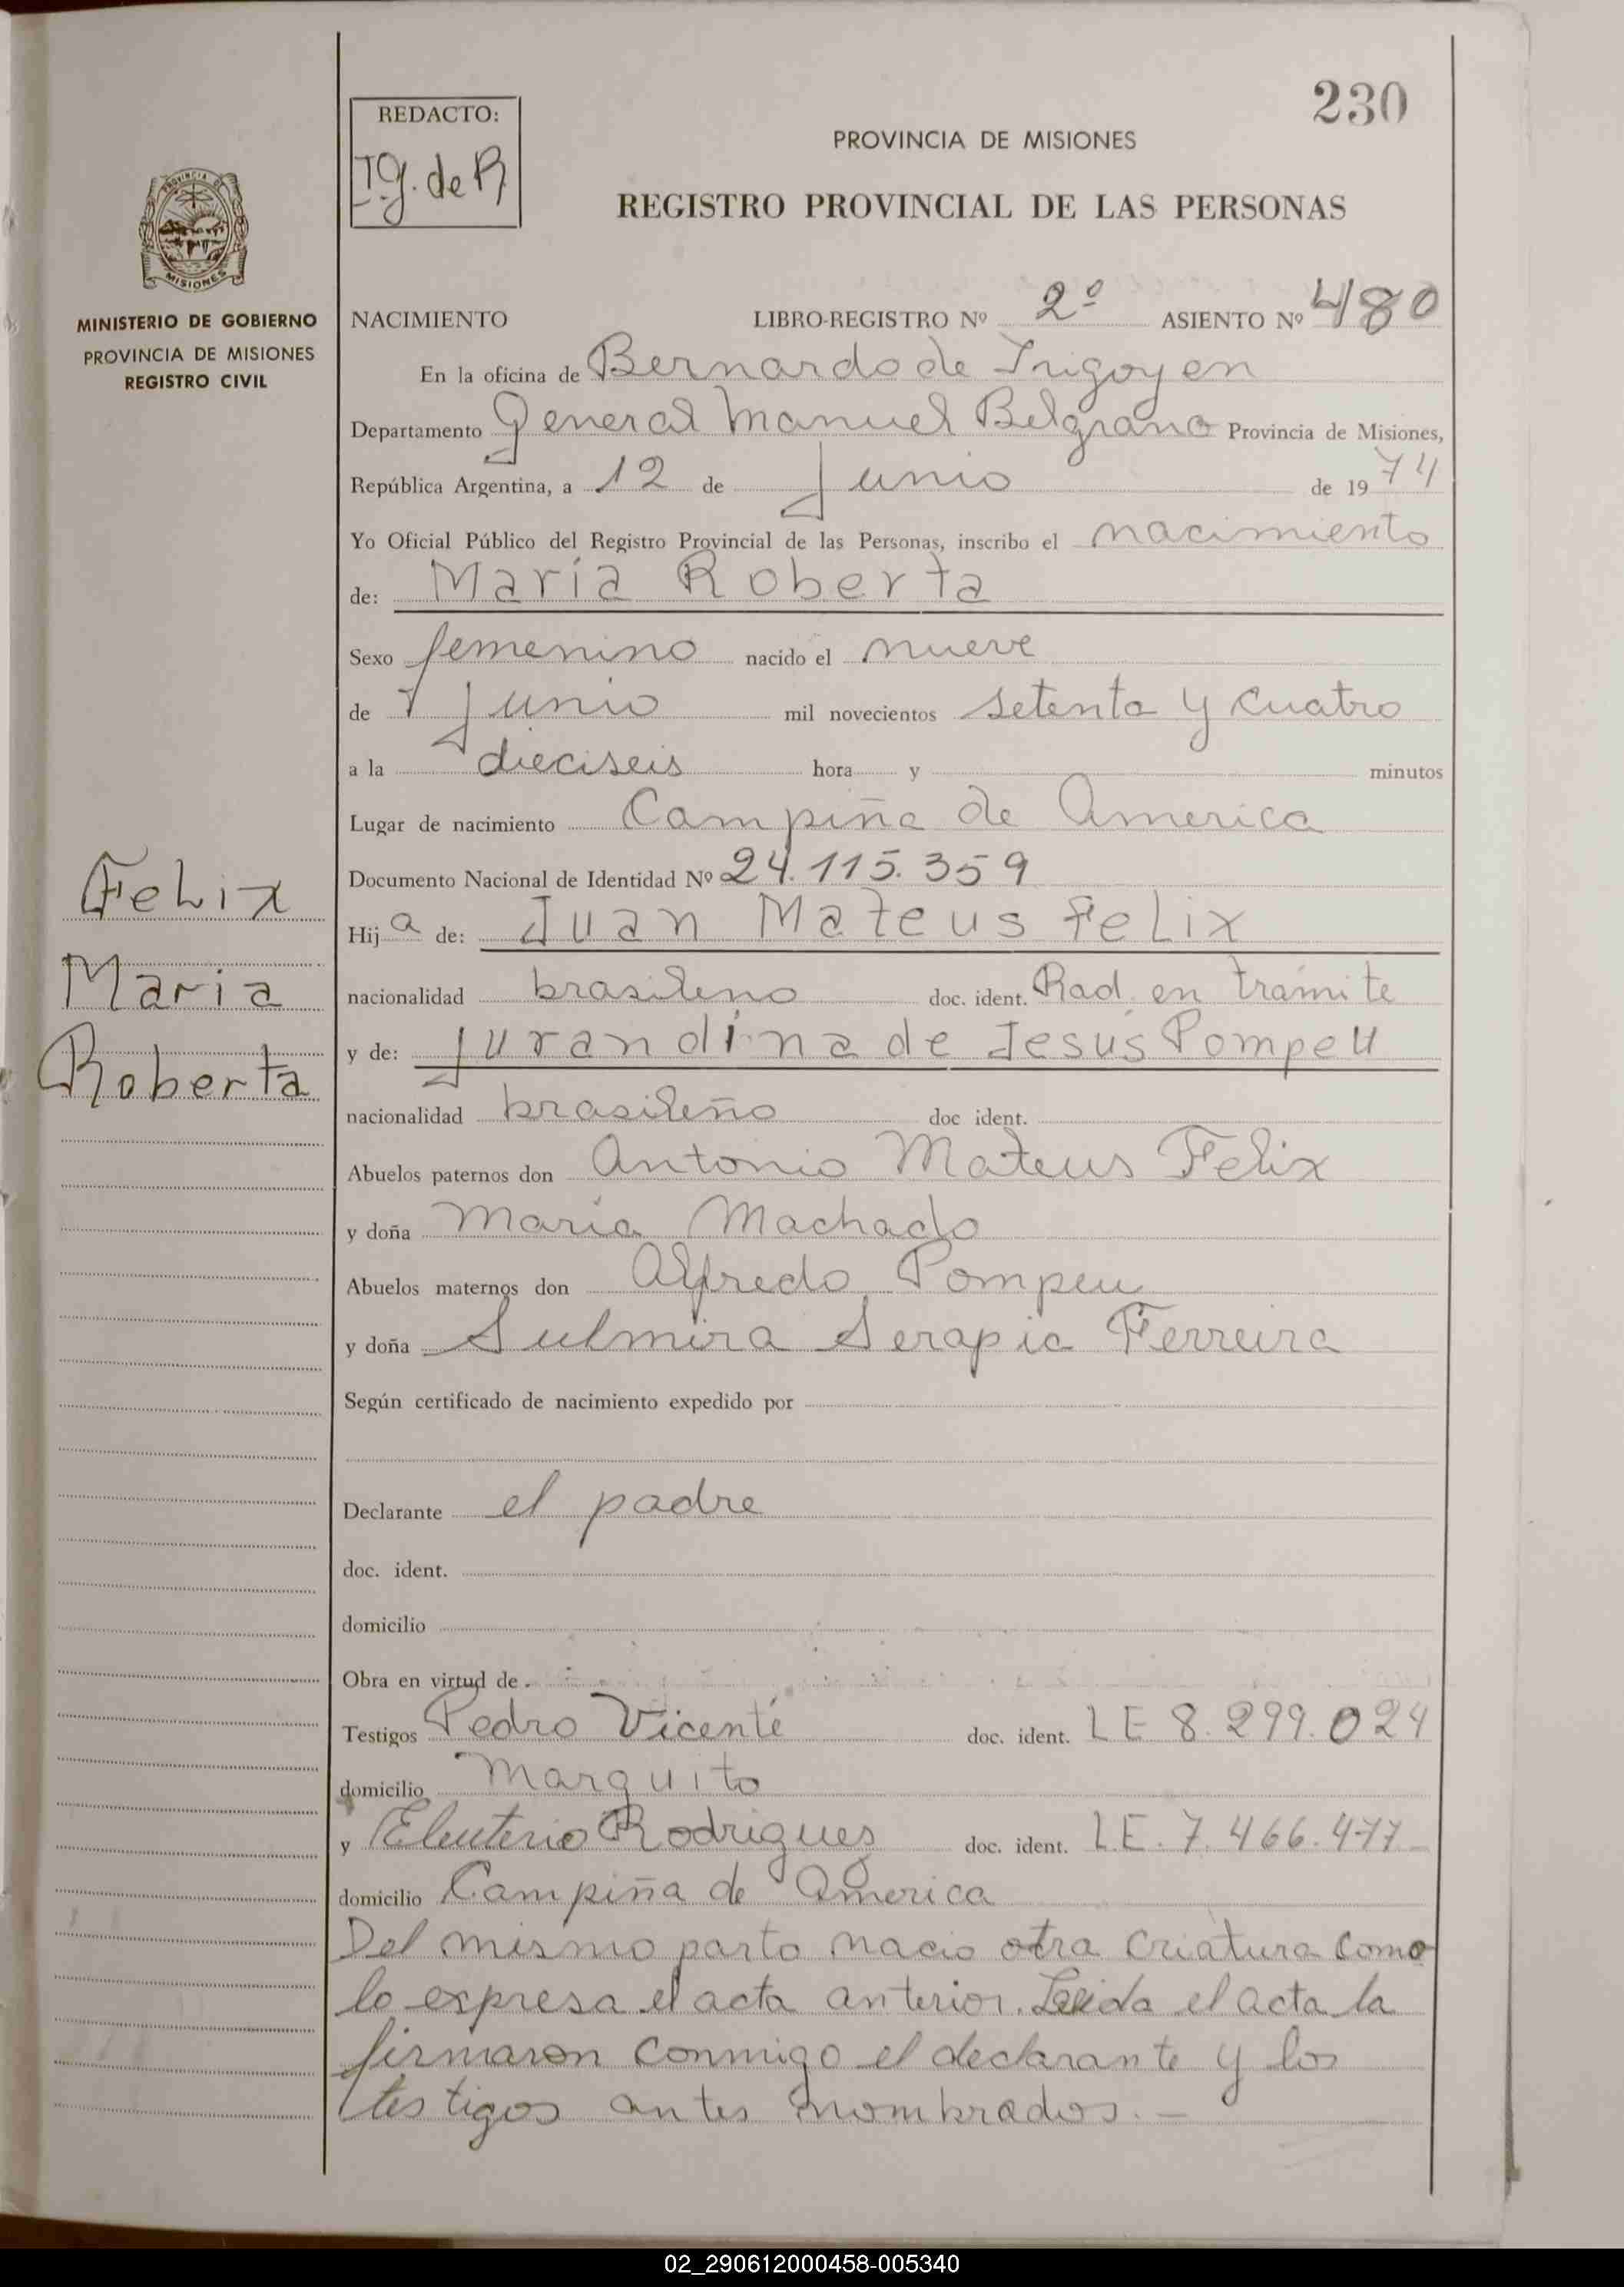 230
REDACTO:
PROVINCIA DE MISIONES
REGISTRO PROVINCIAL DE LAS PERSONAS
PROVINCIA DE
MISIONES
MINISTERIO DE GOBIERNO
PROVINCIA DE MISIONES
REGISTRO CIVIL
NACIMIENTO LIBRO-REGISTRO Nº 2º ASIENTO Nº 480
En la oficina de Bernardo de Irigoyen
Departamento General Manuel Belgrano Provincia de Misiones,
República Argentina, a 12 de Junio de 1974
Yo Oficial Público del Registro Provincial de las Personas, inscribo el nacimiento
de: María Roberta
Sexo femenino nacido el nueve
de Junio mil novecientos setenta y cuatro
a la dieciseis hora y minutos
Lugar de nacimiento Campiña de America
Documento Nacional de Identidad Nº 24.115.359
Felix
Hija de: Juan Mateus Felix
Maria
nacionalidad brasileno doc. ident. Rad. en tramite
Roberta
y de: Jurandina de Jesús Pompeu
nacionalidad brasileño doc ident.
Abuelos paternos don Antonio Mateus Felix
y doña María Machado
Abuelos maternos don Alfredo Pompeu
y doña Sulmira Serapia Ferreira
Según certificado de nacimiento expedido por
Declarante el padre
doc. ident.
domicilio
Obra en virtud de
Testigos Pedro Vicente doc. ident. LE 8.299.024
domicilio Marquito
y Eleuterio Rodrigues doc. ident. L.E. 7.466.477
domicilio Campiña de America
Del mismo parto nacio otra criatura como
lo expresa el acta anterior. Leida el acta la
firmaron conmigo el declarante y los
testigos antes nombrados.—
02_290612000458-005340